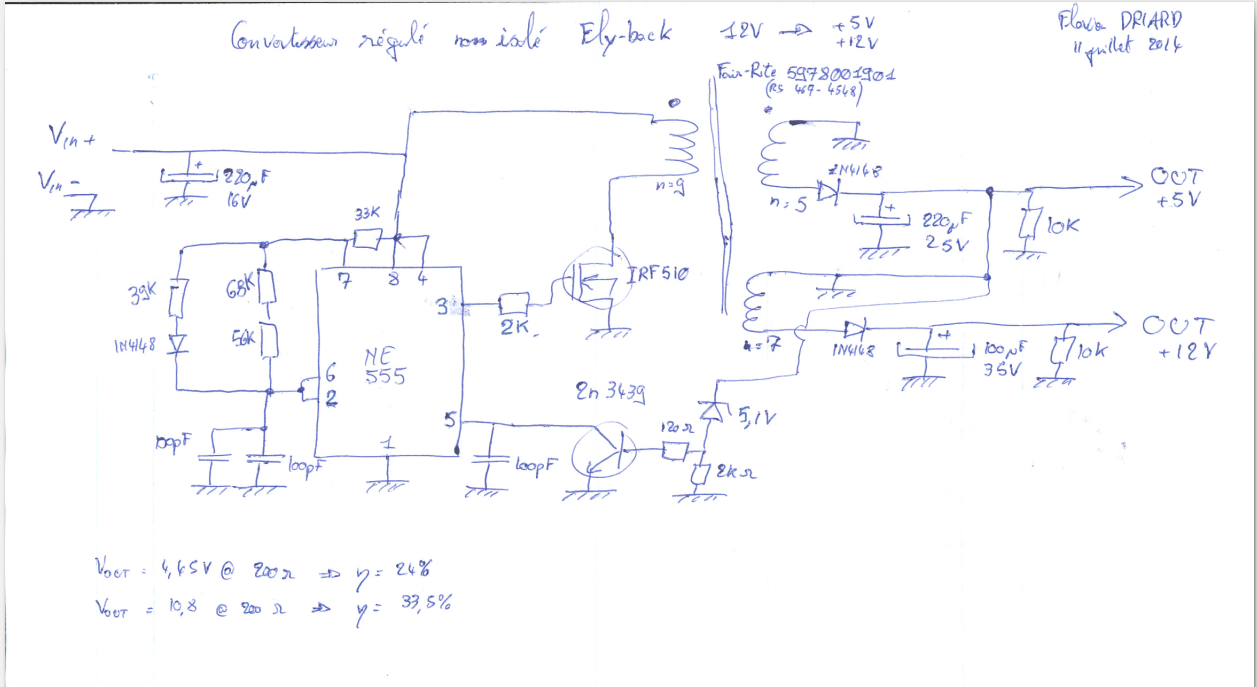 Convertisseur régulé non isolé Fly-back 12V → +5V
+12V
Flavio DRIARD
11 juillet 2014
Fair-Rite 5978001901
(RS 467-4548)
Vin+
Vin-
+
220µF
16V
n=9
n=5
1N4148
+
220µF
25V
10K
OUT
+5V
33K
39K
68K
56K
1N4148
7
8
4
3
NE
555
6
2
5
1
2K
IRF510
n=7
1N4148
+
100µF
35V
10K
OUT
+12V
2n 3439
5,1V
120Ω
2KΩ
100pF
100pF
100pF
VOUT = 4,45V @ 200Ω ⇒ η = 24%
VOUT = 10,8 @ 200Ω ⇒ η = 33,5%